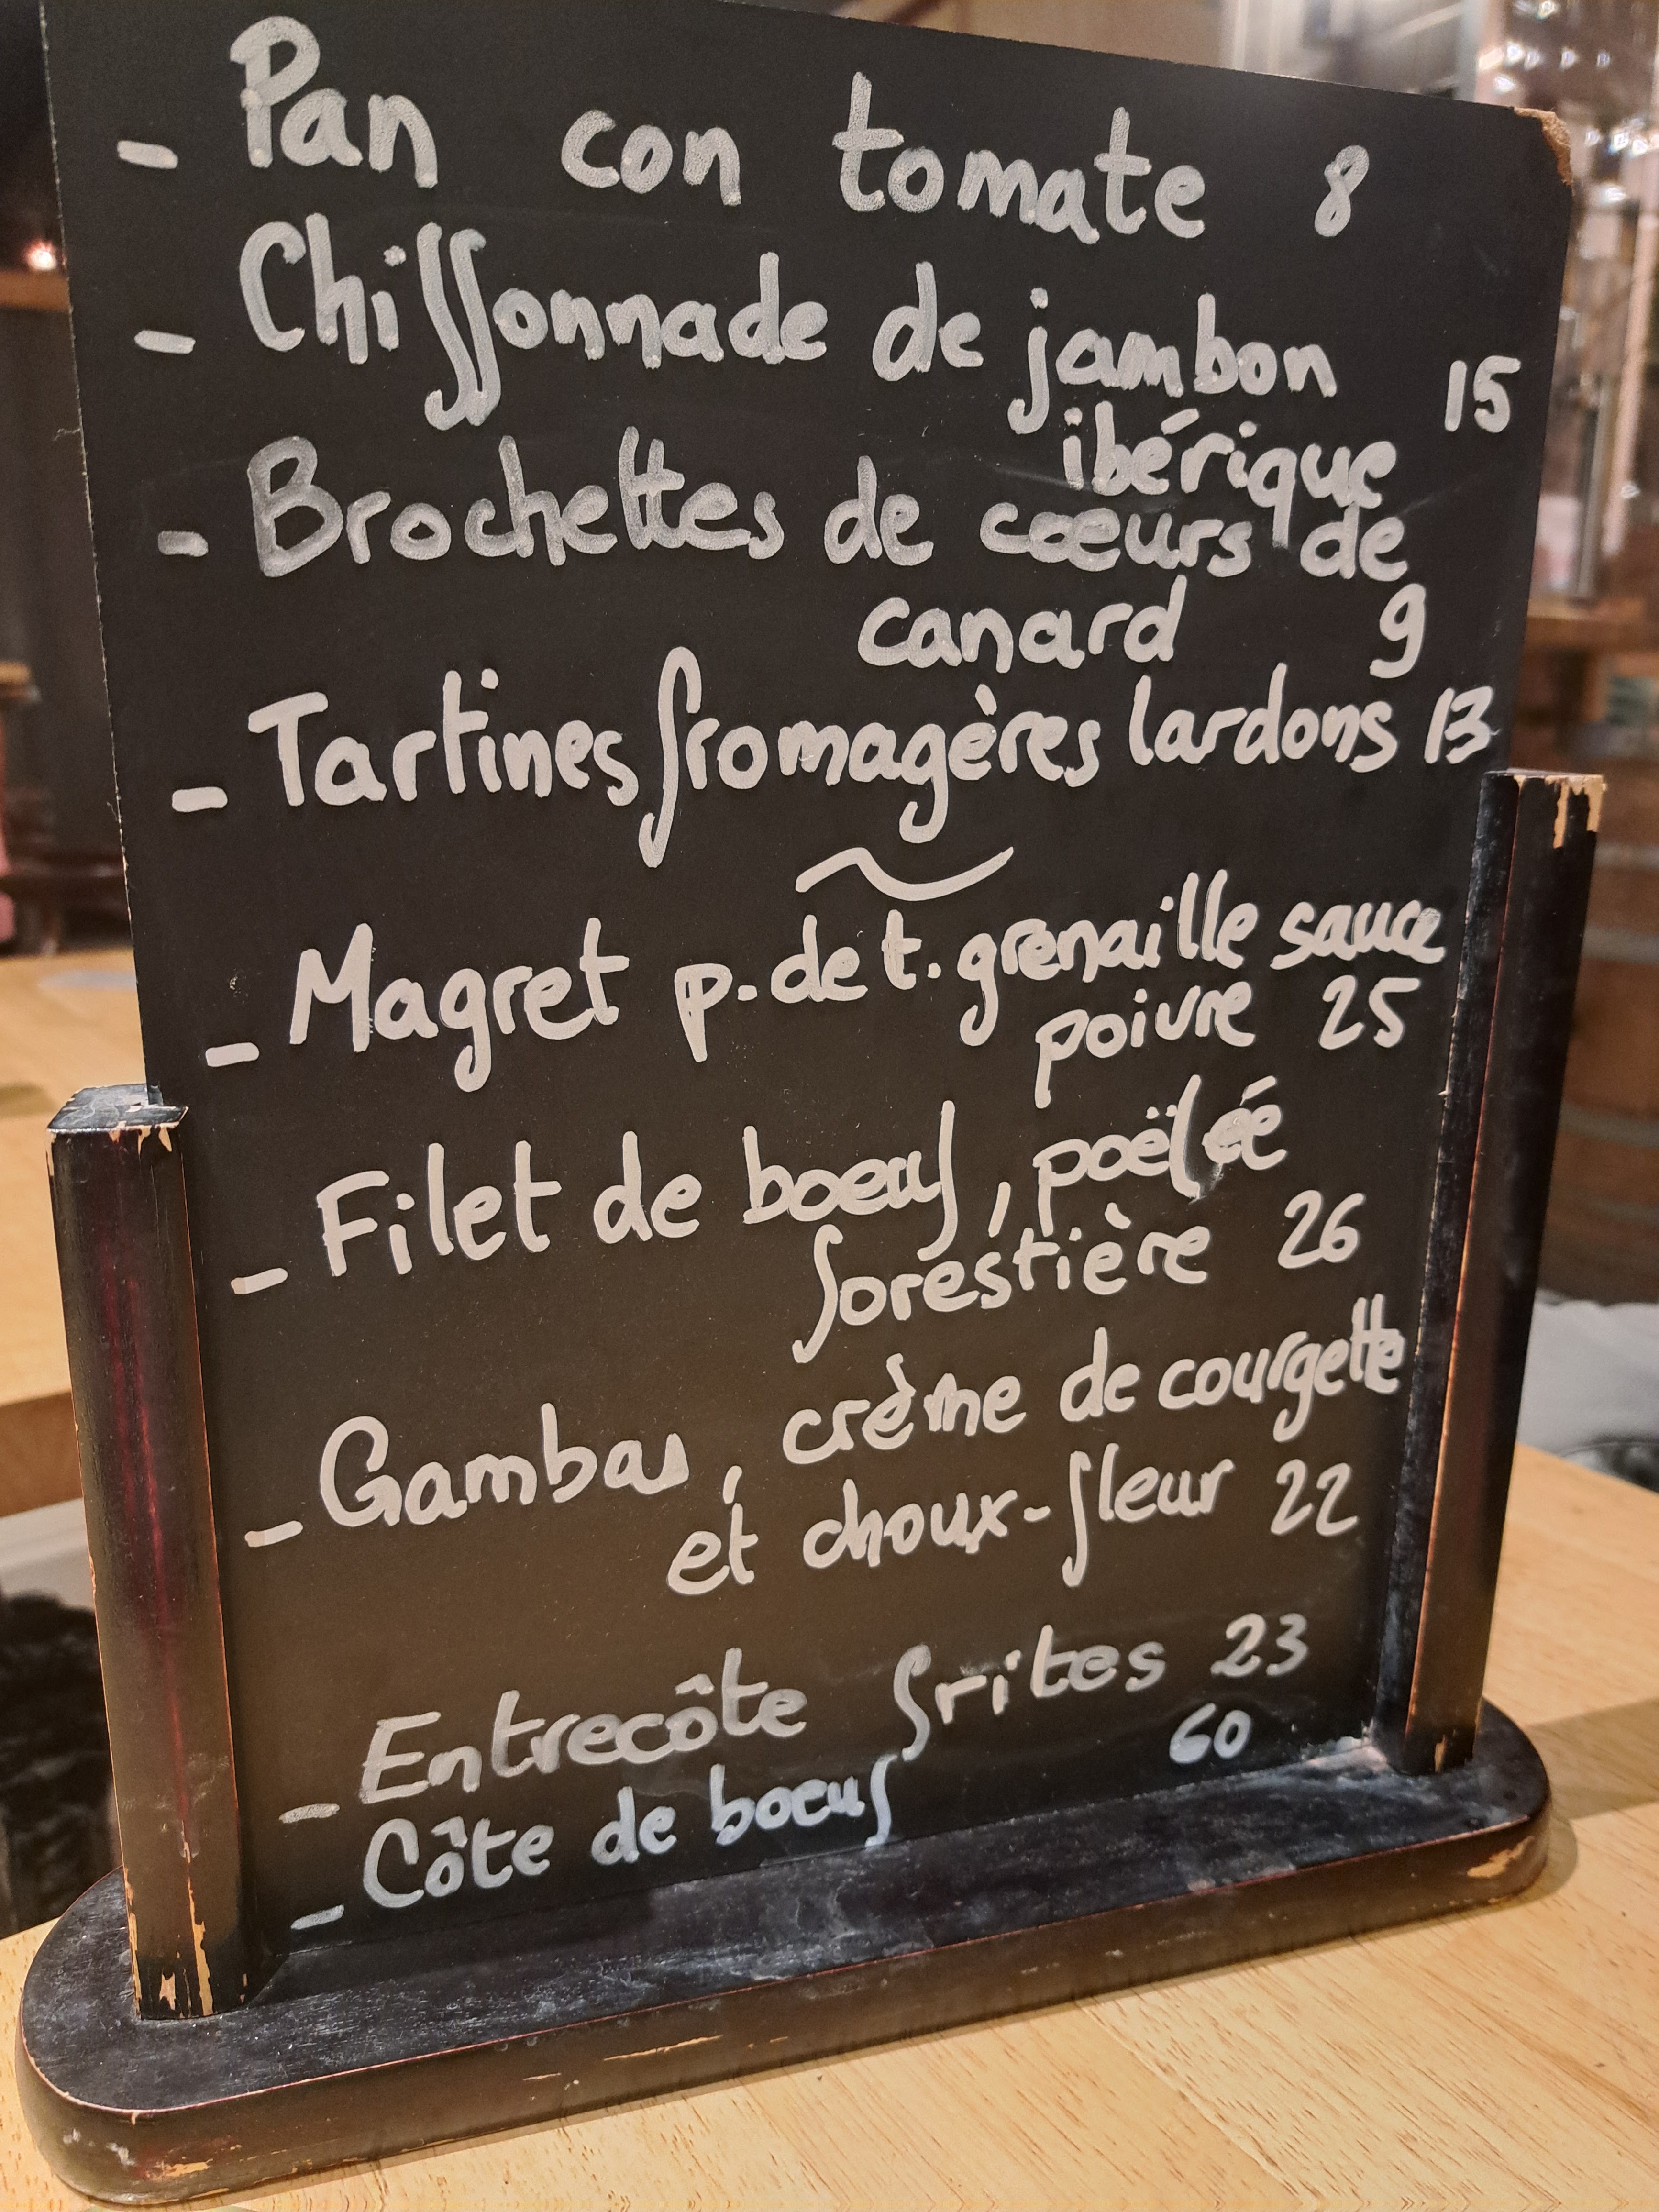 - Pan con tomate 8
- Chiffonnade de jambon 15
ibérique
- Brochettes de cœurs de
canard 9
- Tartines fromagères lardons 13
~
- Magret p. de t. grenaille sauce
poivre 25
- Filet de bœuf, poëlée
forestière 26
- Gambas, crème de courgette
et choux-fleur 22
- Entrecôte frites 23
- Côte de bœuf 60